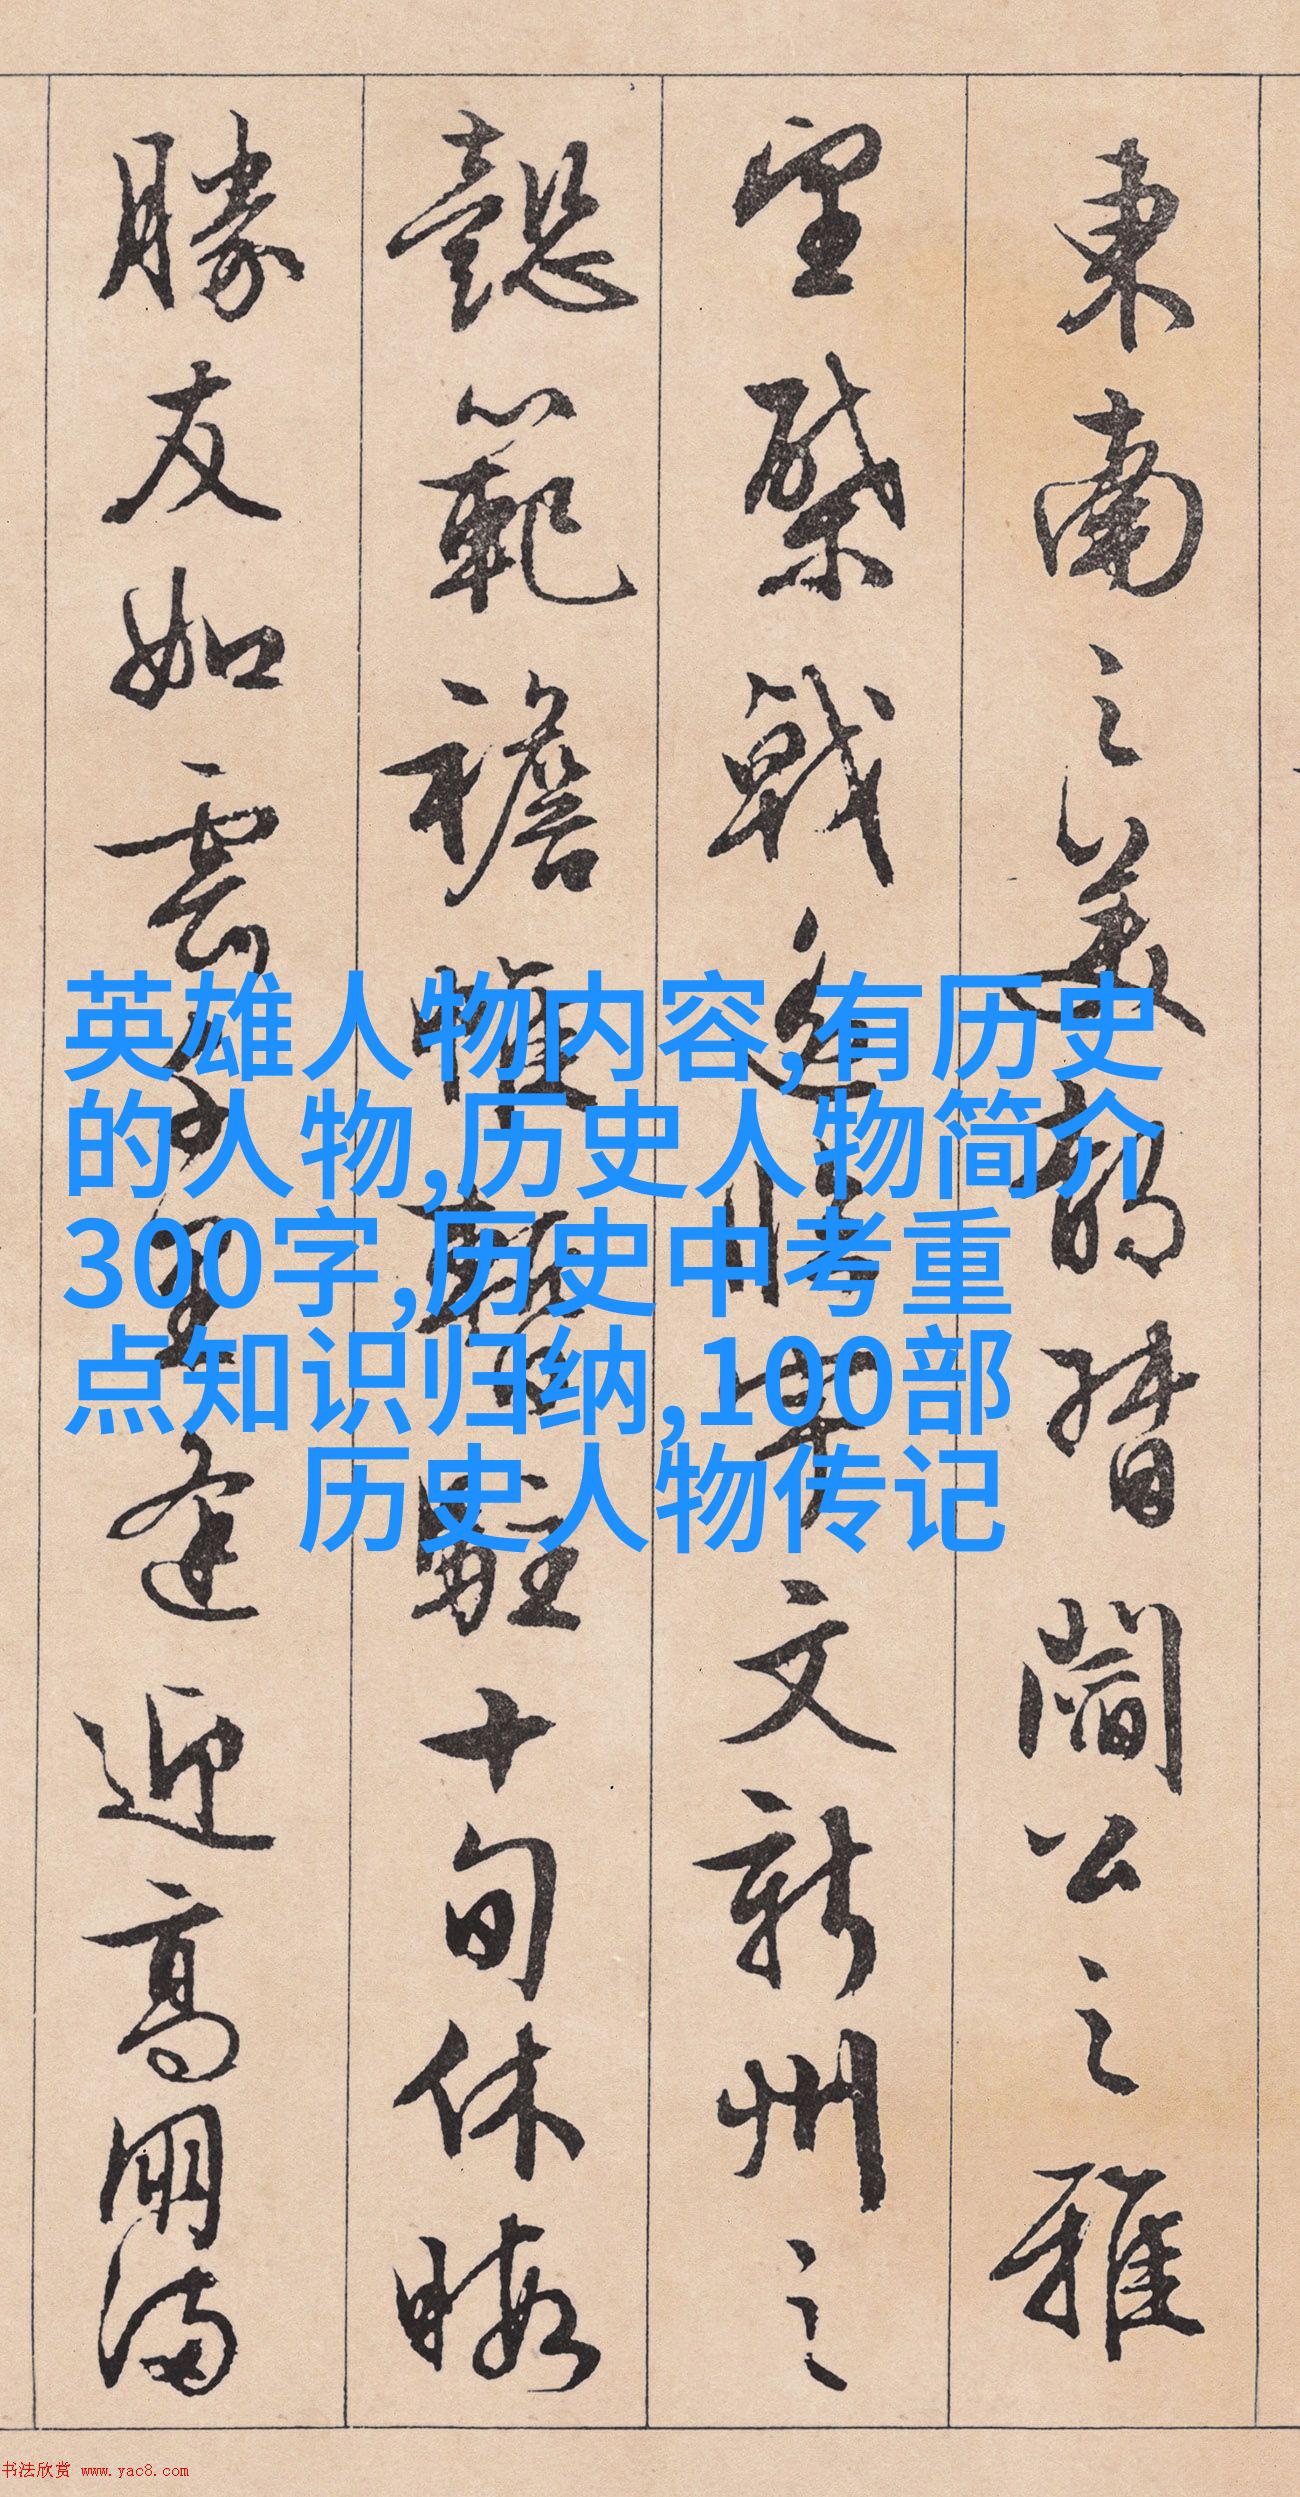 東南之美都督閻公之雅
望棨戟遙臨宇文新州之
懿範襜帷暫駐十旬休暇
勝友如雲千里逢迎高朋滿
英雄人物内容,有历史
的人物,历史人物简介
300字,历史中考重
点知识归纳,100部
历史人物传记
书法欣赏 www.yac8.com